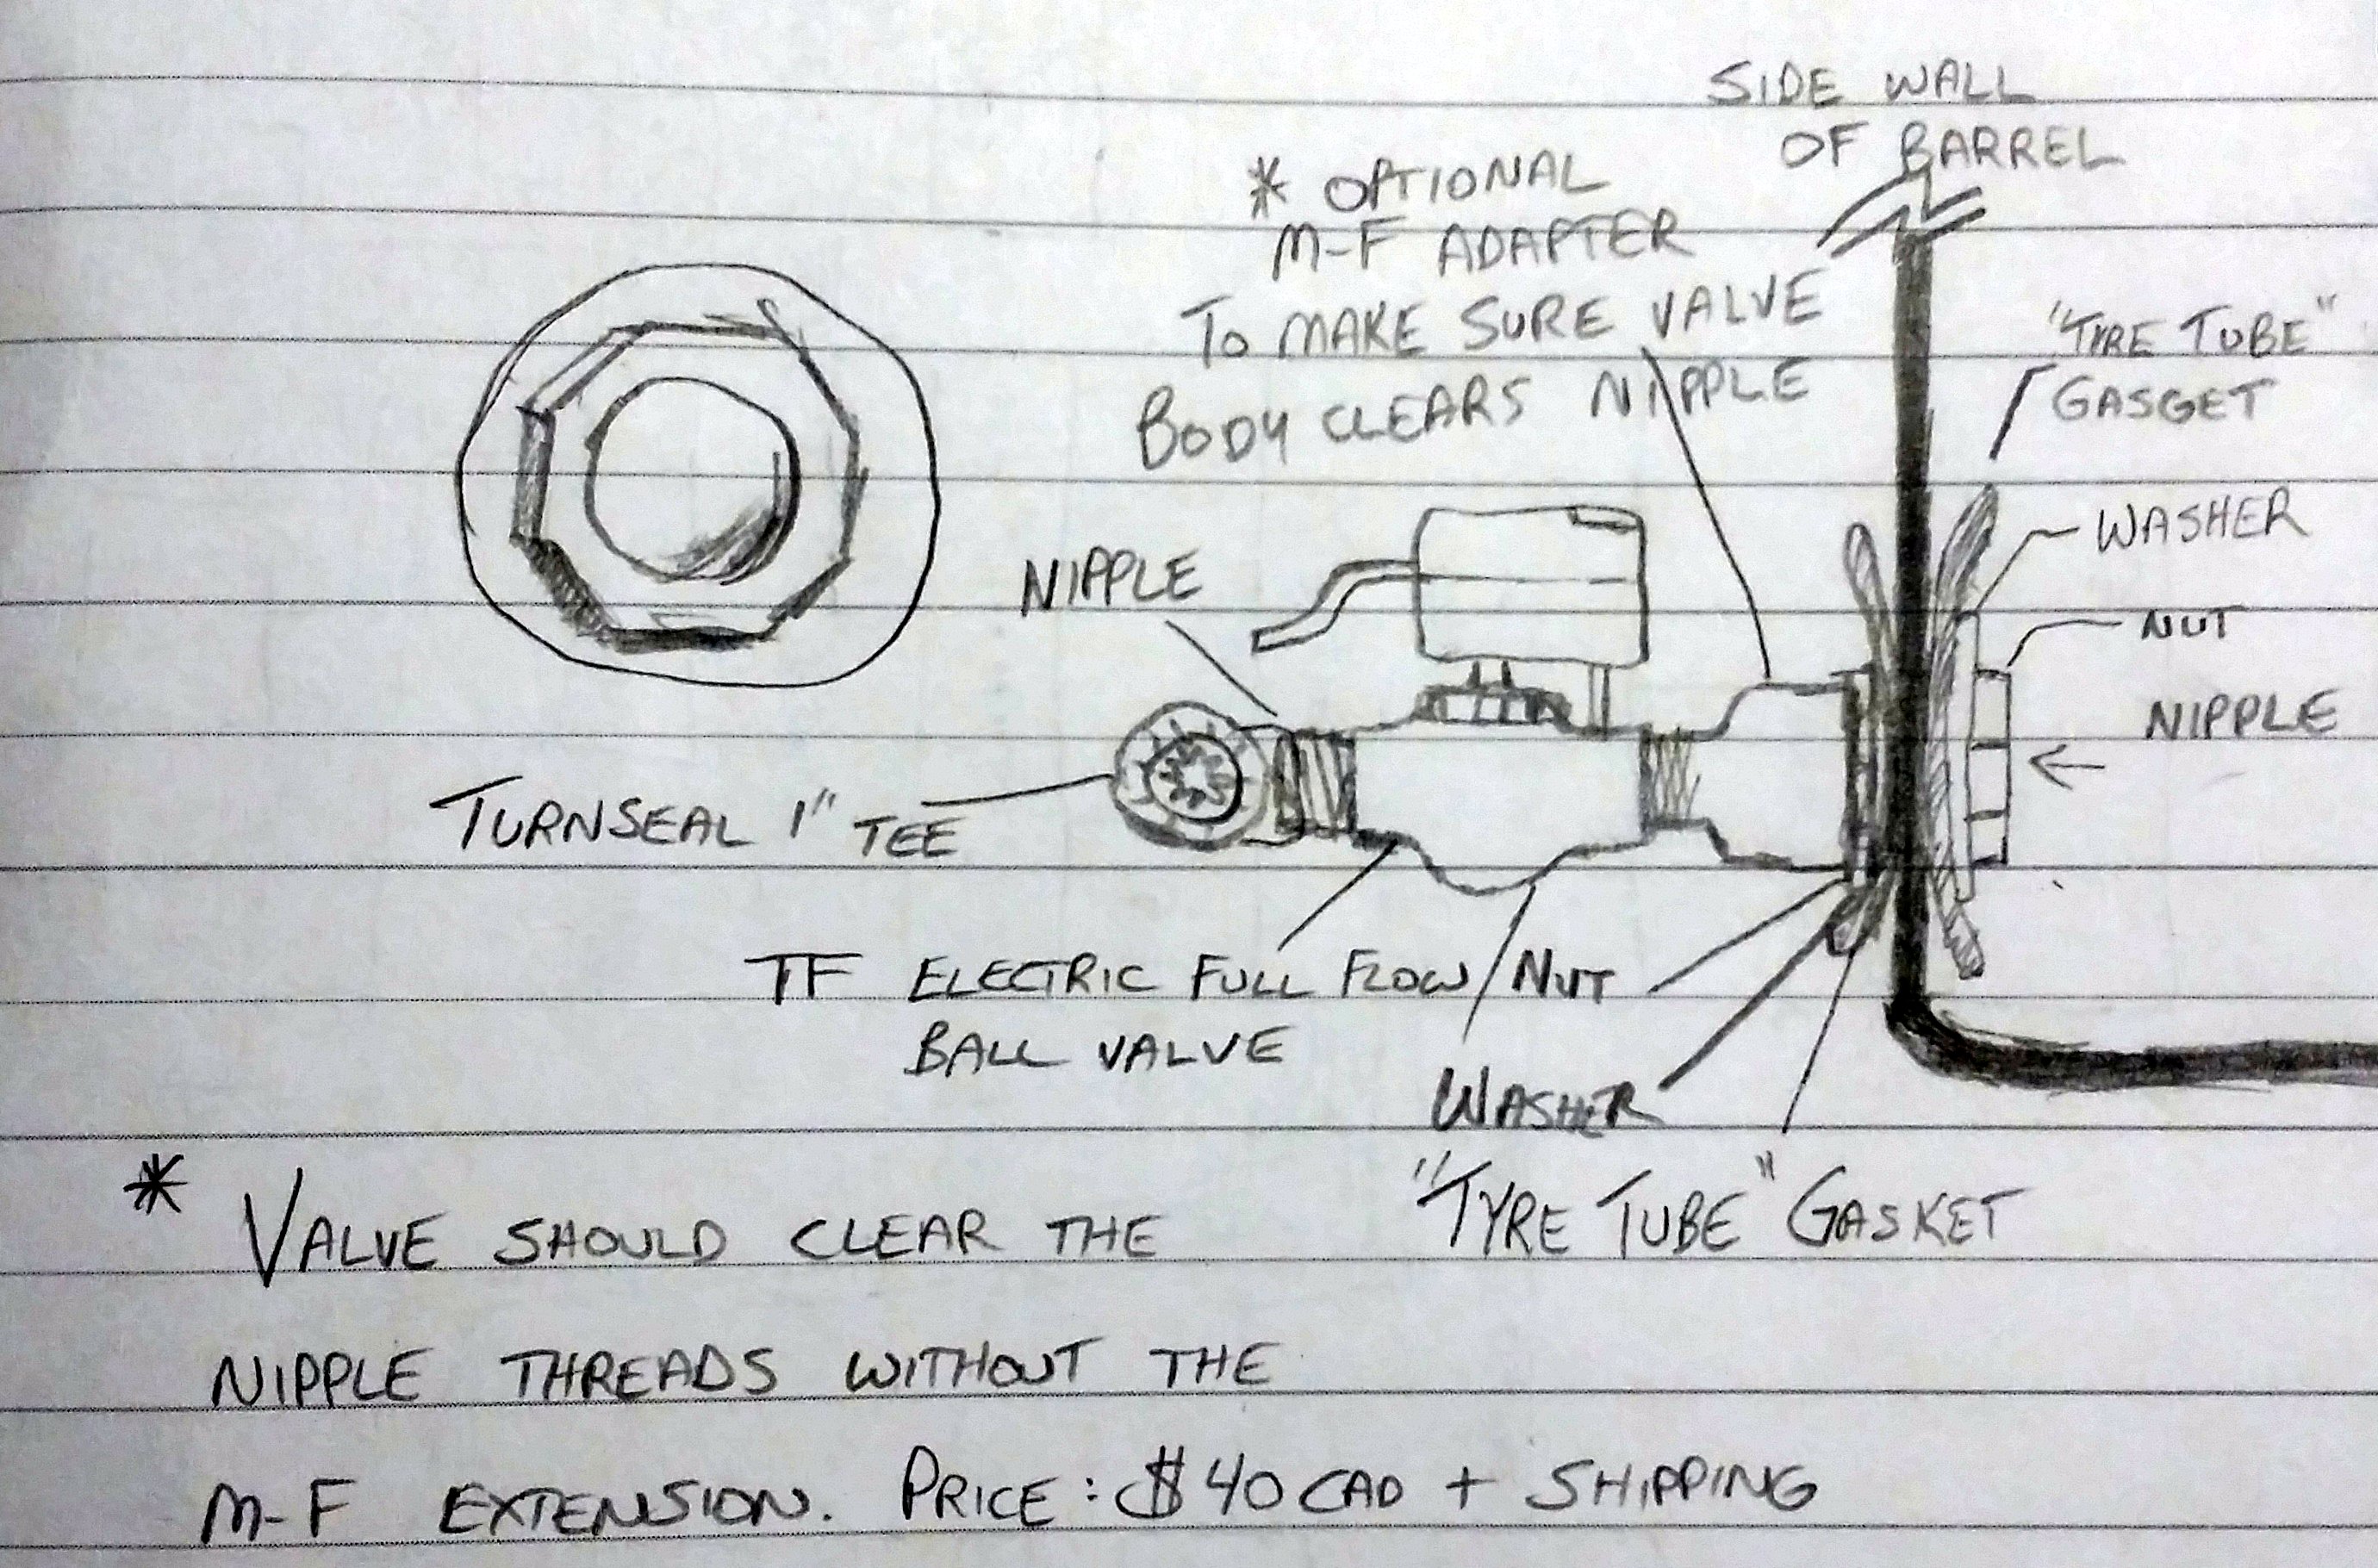 SIDE WALL
OF BARREL
* OPTIONAL
M-F ADAPTER
TO MAKE SURE VALVE
BODY CLEARS NIPPLE
"TYRE TUBE"
GASGET
WASHER
NUT
NIPPLE
NIPPLE
TURNSEAL 1" TEE
TF ELECTRIC FULL FLOW
BALL VALVE
NUT
WASHER
"TYRE TUBE" GASKET
* VALVE SHOULD CLEAR THE
NIPPLE THREADS WITHOUT THE
M-F EXTENSION. PRICE: $40 CAD + SHIPPING